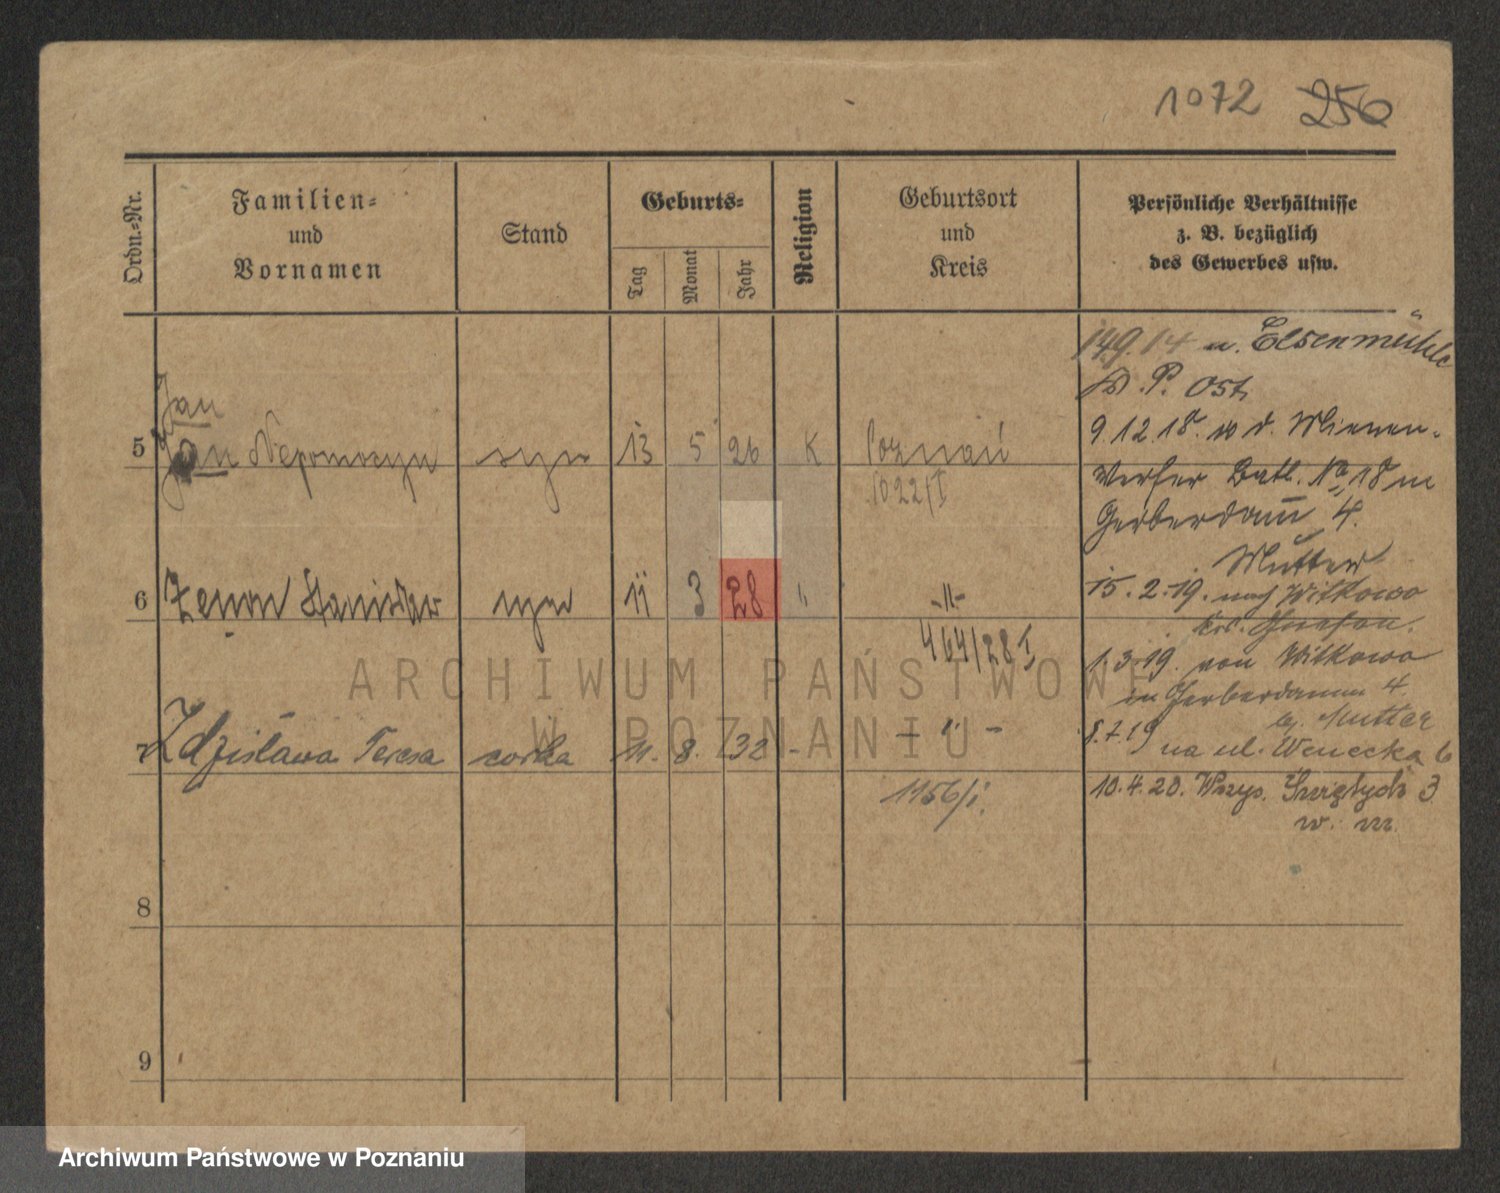 1072 256
Ordn.-Nr.
Familien-
und
Vornamen
Stand
Geburts-
Tag
Monat
Jahr
Religion
Geburtsort
und
Kreis
Persönliche Verhältnisse
z. B. bezüglich
des Gewerbes usw.
14.9.14 n. Elsenmühle
P. Ost,
9.12.18. w d. Minen-
Werfer Batl. No 18 in
Gerberdam̅ 4.
Mutter
15.2.19. nach Witkowo
Krs. Gnesen.
1.3.19. von Witkowo
in Gerberdamm 4.
bj. Mutter
8.7.19
na ul. Wenecka 6
10.4.20. Wszys. Świętych 3
w. m.
Jan
5 Jan Nepomocyn syn 13 5 26 K Poznań
1022/I
6 Zenon Stanisław syn 11 3 28 " -"-
464/28 I
7 Zdzisława Teresa corka 11. 8. 32 - - " -
1156/i.
8
9
ARCHIWUM PAŃSTWOWE
W POZNANIU
Archiwum Państwowe w Poznaniu